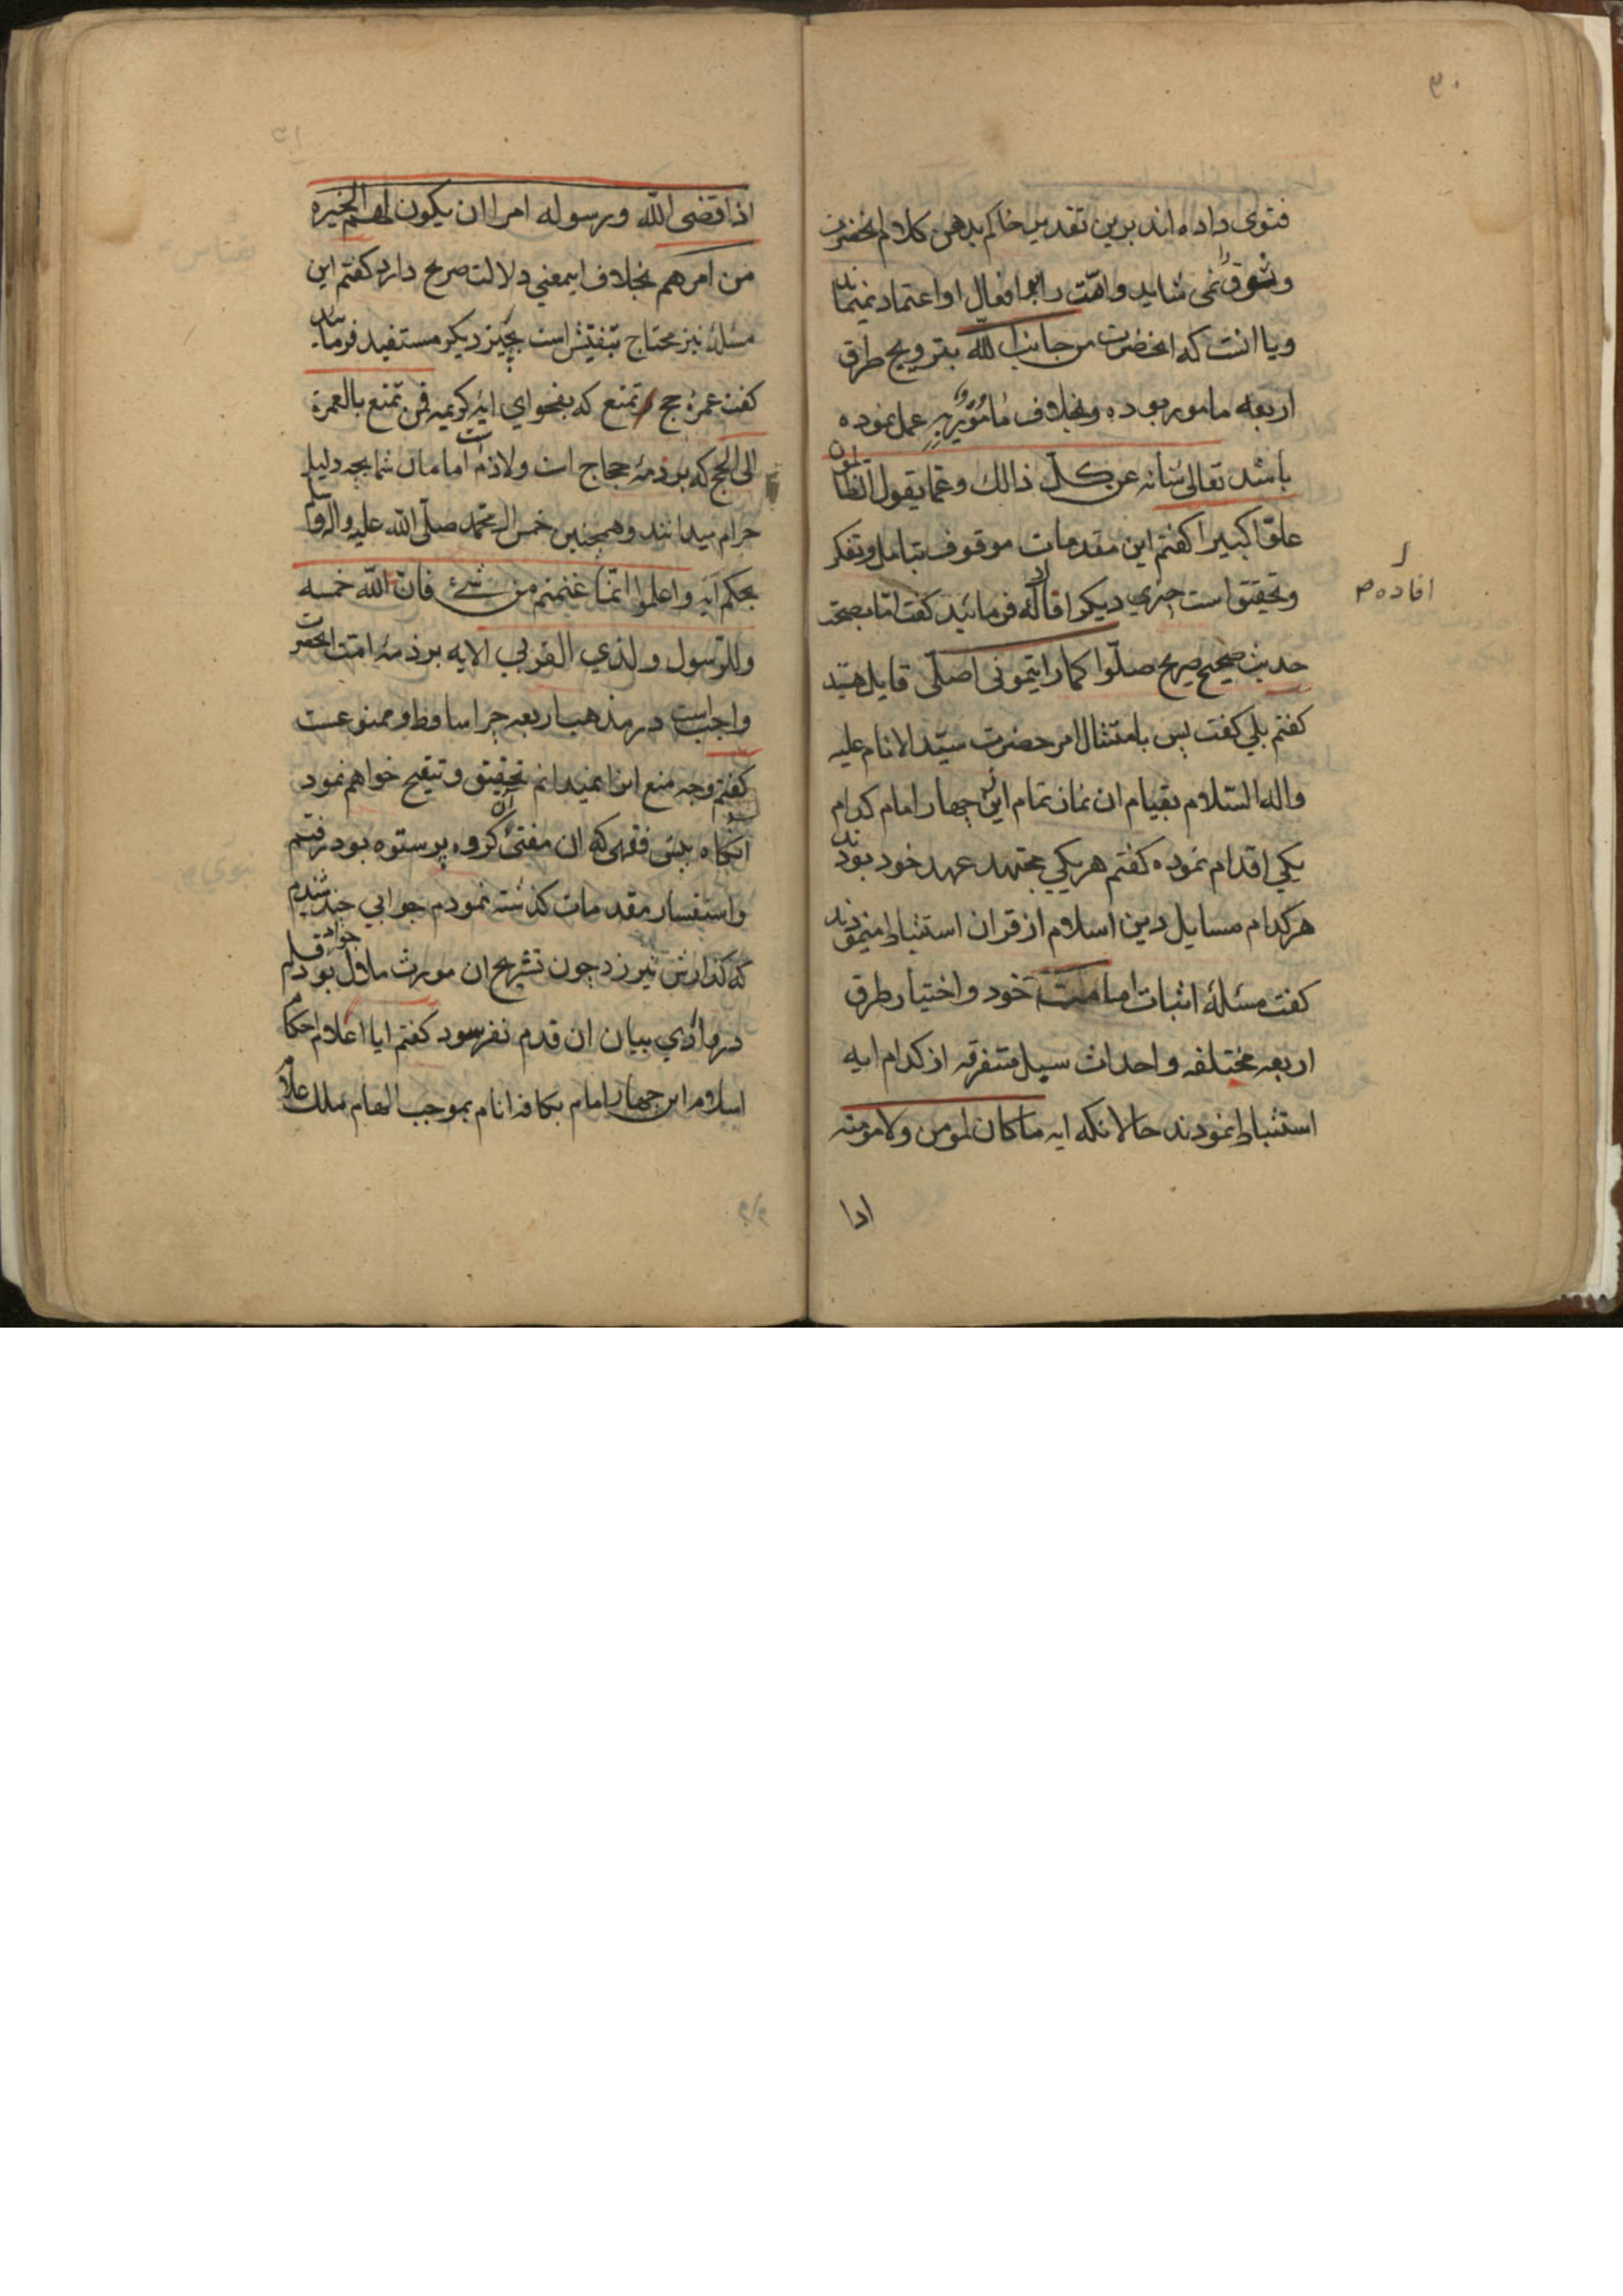 ۳۰
فتوی داده اند برین تقدیر حاکم بدهن کلام انحضرت
وثوق را نمی شاید و امت را بر افعال او اعتماد نمیماند
و یا انست که انحضرت من جانب الله بترویج طرق
اربعه مامور بوده و بخلاف مامور به عمل نموده
باشد تعالی شانه عن کل ذالك وعما یقول الظالمون
علوا کبیرا کفتم این مقدمات موقوف بتامل و تفکر
و تحقیق است چیزی دیکر افاده فرمائید کفت ایا بصحت
افاده
حدیث صحیح صریح صلوا کما رایتمونی اصلی قایل هستید
کفتم بلی کفت پس بامتثال امر حضرت سید الانام علیه
واله السلام بقیام ان نماز تمام ازین چهار امام کدام
یکی اقدام نموده کفتم هر یکی مجتهد عهد خود بودند
هر کدام مسایل دین اسلام از قران استنباط مینمودند
کفت مسئلهٔ اثبات امامت خود و اختیار طرق
اربعه مختلفه و احداث سبل متفرقه از کدام ایه
استنباط نمودند حالانکه ایه ماکان لمومن ولا مومنه
اذا
اذا قضی الله ورسوله امرا ان یکون لهم الخیره
من امرهم بخلاف ایمعنی دلالت صریح دارد کفتم این
مسئله نیز محتاج بتفتیش است بچیز دیکر مستفید فرمائید
کفت عمره حج تمتع که بفحوای ایه کریمه فمن تمتع بالعمرة
الی الحج که بر ذمه حجاج است ولازم است امامان شما بچه دلیل
حرام میدانند و همچنین خمس ال محمد صلی الله علیه واله وسلم
بحکم ایه واعلموا انما غنمتم من شیء فان الله خمسه
وللرسول ولذي القربی الایه بر ذمه امت انحضرت
واجب است در مذهب اربعه چرا ساقط و ممنوعست
کفتم وجه منع اینرا نمیدانم تحقیق و تنقیح خواهم نمود
انکاه پیش فقهی که ان مفتی ان کروه پرستوه بود رفتم
و استفسار مقدمات کذشته نمودم جوابی چند شنیدم
که کذارش نیرزد چون تشریح ان مورث ملال بود جواد قلم
در وادي بیان ان قدم نفرسود کفتم ایا اعلام احکام
اسلام این چهار امام بکافه انام بموجب الهام ملك علام